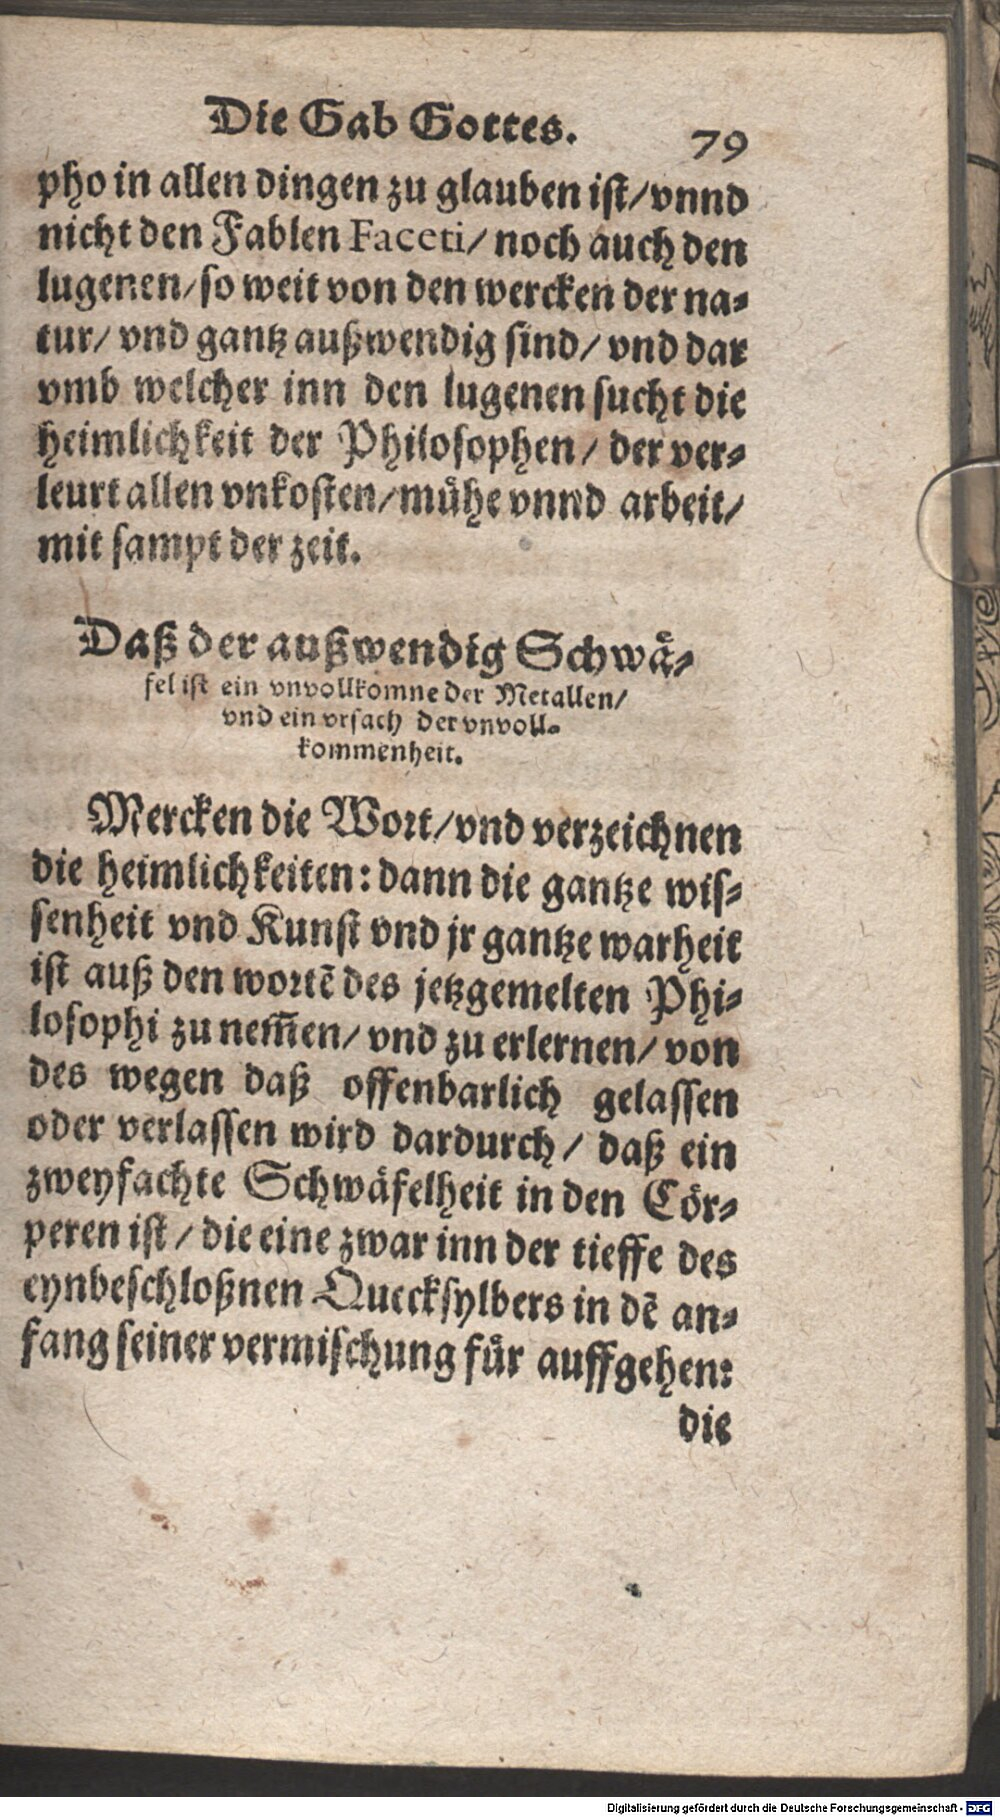 Die Gab Gottes.
79
pho in allen dingen zu glauben ist/ vnnd
nicht den Fablen Faceti/ noch auch den
lugenen/ so weit von den wercken der na-
tur/ vnd gantz außwendig sind/ vnd dar
vmb welcher inn den lugenen sucht die
heimlichkeit der Philosophen/ der ver-
leurt allen vnkosten/ mühe vnnd arbeit/
mit sampt der zeit.
Daß der außwendig Schwä-
fel ist ein vnvollkomne der Metallen/
vnd ein vrsach der vnvoll-
kommenheit.
Mercken die Wort/ vnd verzeichnen
die heimlichkeiten: dann die gantze wis-
senheit vnd Kunst vnd jr gantze warheit
ist auß den wortē des jetzgemelten Phi-
losophi zu nem̄en/ vnd zu erlernen/ von
des wegen daß offenbarlich gelassen
oder verlassen wird dardurch/ daß ein
zweyfachte Schwäfelheit in den Cör-
peren ist/ die eine zwar inn der tieffe des
eynbeschloßnen Quecksylbers in dē an-
fang seiner vermischung für auffgehen:
die
Digitalisierung gefördert durch die Deutsche Forschungsgemeinschaft - DFG